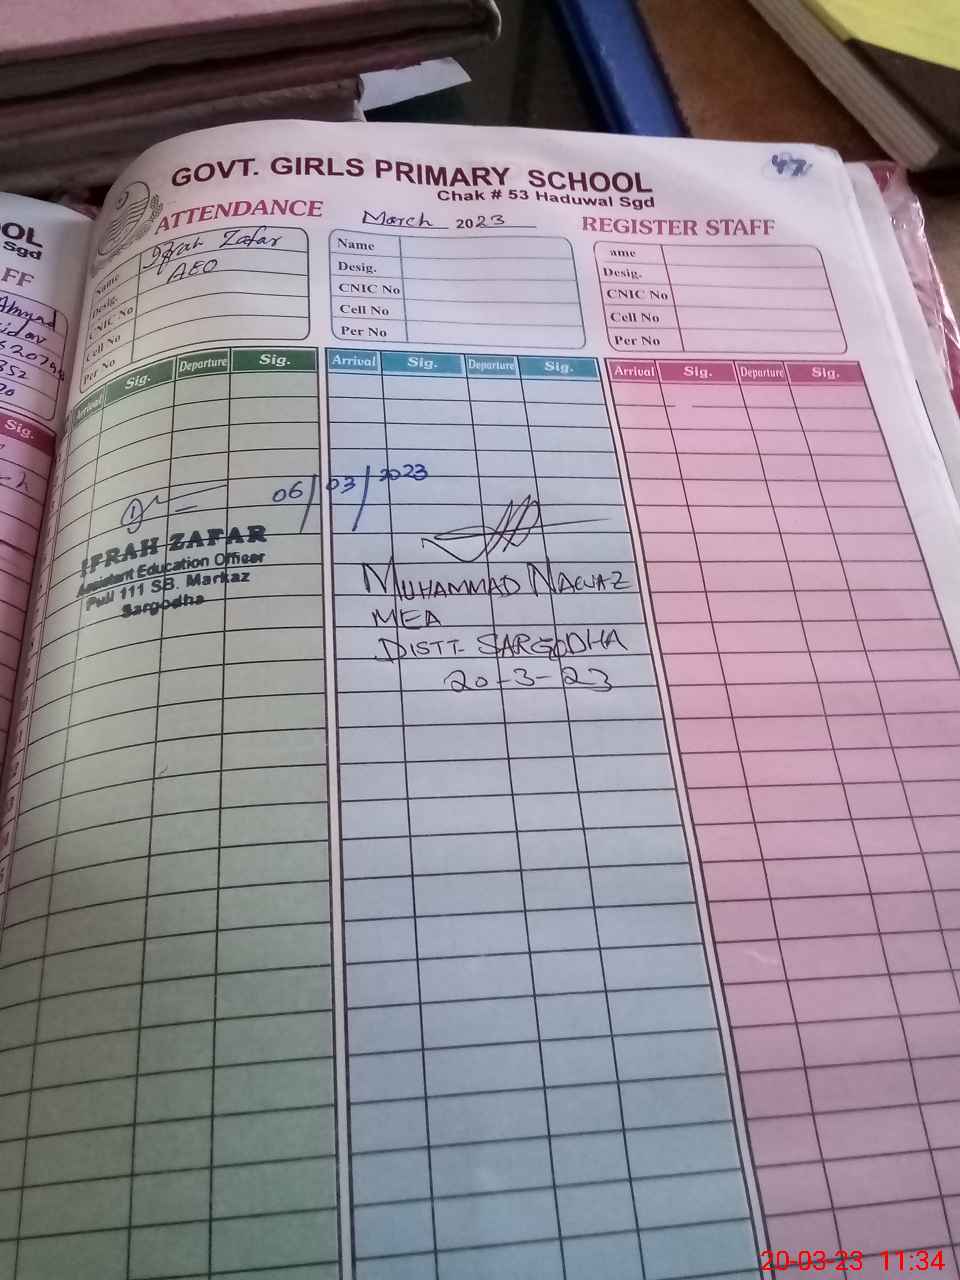 GOVT. GIRLS PRIMARY SCHOOL
47
Chak # 53 Haduwal Sgd
ATTENDANCE March 2023 REGISTER STAFF
Name Ifrah Zafar
Desig. AEO
CNIC No
Cell No
Per No
Name
Desig.
CNIC No
Cell No
Per No
ame
Desig.
CNIC No
Cell No
Per No
Arrival Sig. Departure Sig. Arrival Sig. Departure Sig. Arrival Sig. Departure Sig.
06/03/2023
IFRAH ZAFAR
Assistant Education Officer
Pull 111 SB. Markaz
Sargodha
MUHAMMAD NAWAZ
MEA
DISTT- SARGODHA
20-3-23
OOL
Sgd
FF
Sig.
20-03-23 11:34